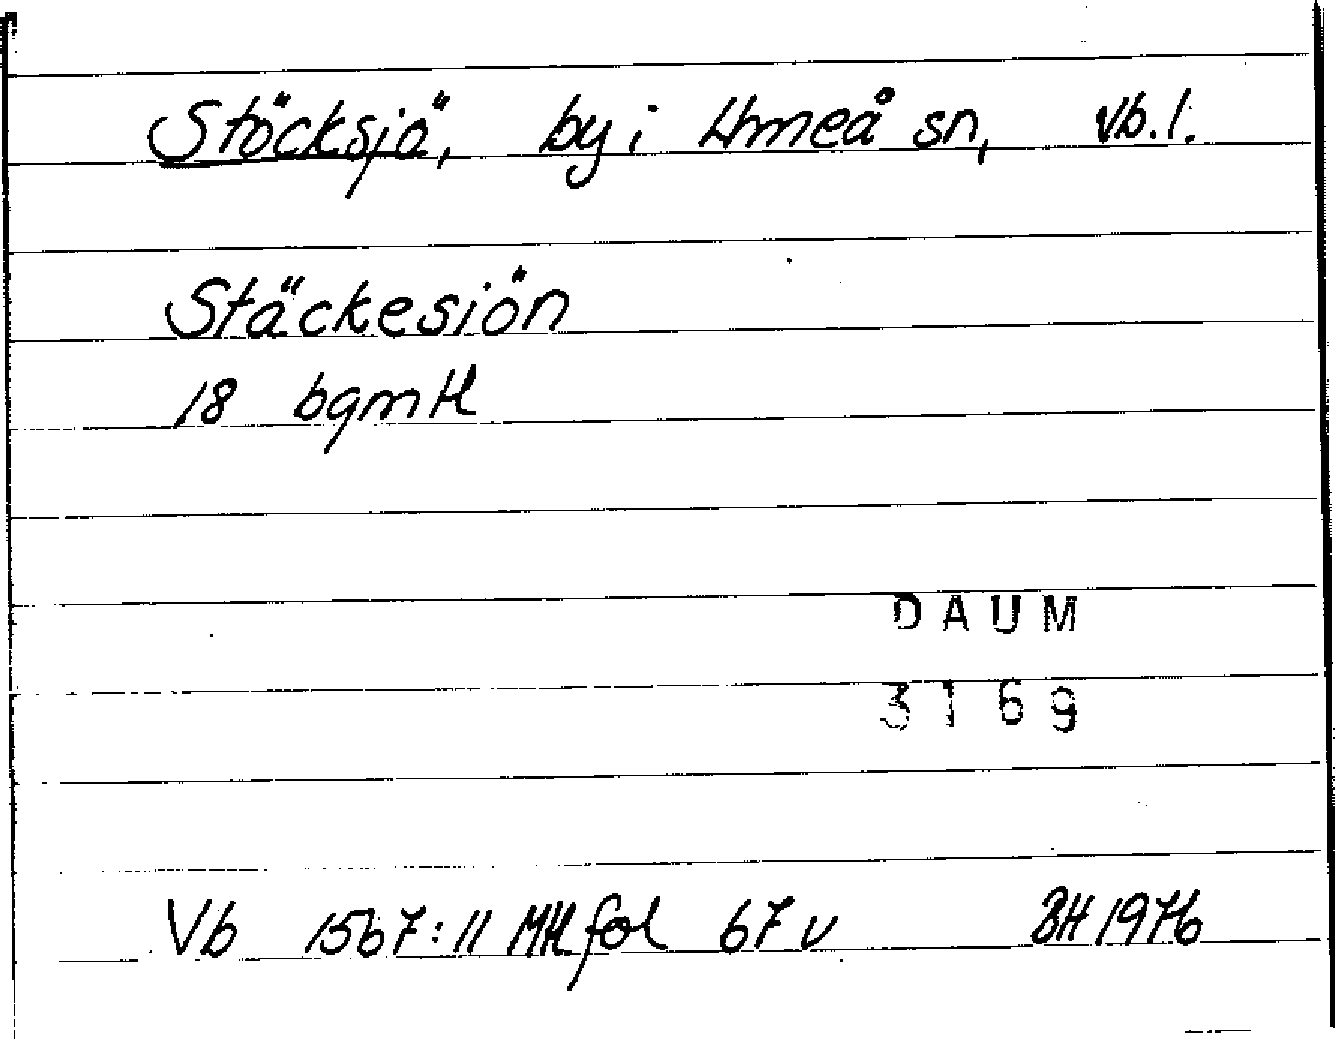 Stöcksjö, by i Umeå sn, Vb.l.
Stäckesiön
18 bgmtl
DAUM
3169
Vb 1567:11 Mtl fol 67 v BH 1976